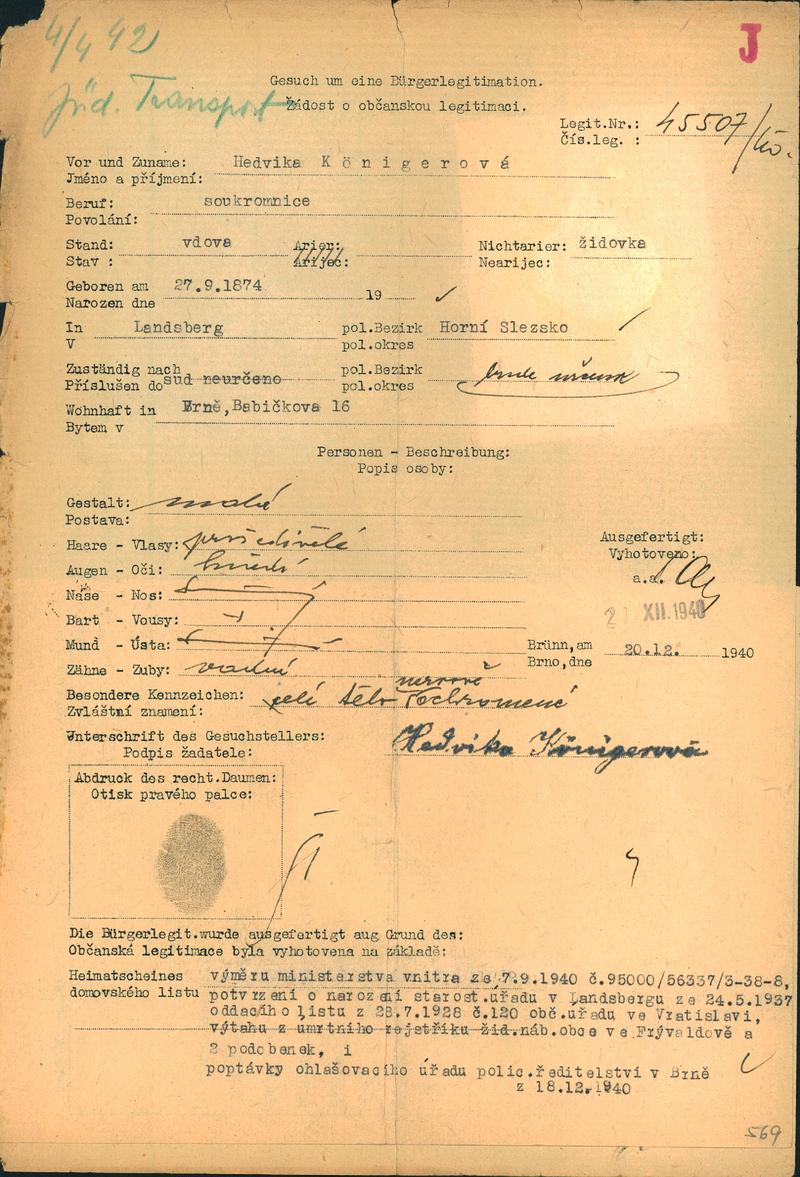 4/4 42
J
Jüd. Transport
Gesuch um eine Bürgerlegitimation.
Žádost o občanskou legitimaci.
Legit.Nr.: 45507/40.
Čís.leg. :
Vor und Zuname: Hedvika Königerová
Jméno a příjmení:
Beruf: soukromnice
Povolání:
Stand: vdova Arier: Nichtarier: židovka
Stav : Arijec: Nearijec:
Geboren am 27.9.1874 19
Narozen dne
In Landsberg pol.Bezirk Horní Slezsko
V pol.okres
Zuständig nach pol.Bezirk
Příslušen do sud neurčeno pol.okres
Wohnhaft in Brně,Babičkova 16
Bytem v
Personen - Beschreibung:
Popis osoby:
Gestalt: malá
Postava:
Haare - Vlasy: prošedivělé
Augen - Oči: hnědé
Nase - Nos:
Bart - Vousy:
Mund - Ústa:
Zähne - Zuby: vadné
Ausgefertigt:
Vyhotoveno:
a.a.
2 XII.1940
Brünn,am 20.12. 1940
Brno,dne
Besondere Kennzeichen: celé tělo nervově ochromené
Zvláštní znamení:
Unterschrift des Gesuchstellers: Hedvika Königerová
Podpis žadatele:
Abdruck des recht.Daumen:
Otisk pravého palce:
Die Bürgerlegit.wurde ausgefertigt aug Grund des:
Občanská legitimace byla vyhotovena na základě:
Heimatscheines výměru ministerstva vnitra ze 7.9.1940 č.95000/56337/3-38-8,
domovského listu potvrzení o narození starost.úřadu v Landsbergu ze 24.5.1937
oddacího listu z 28.7.1928 č.120 obč.uřadu ve Vratislavi,
výtahu z umrtního rejstříku žid.náb.obce ve Frývaldově a
2 podobenek, i
poptávky ohlašovacího úřadu polic.ředitelství v Brně
z 18.12.1940
569